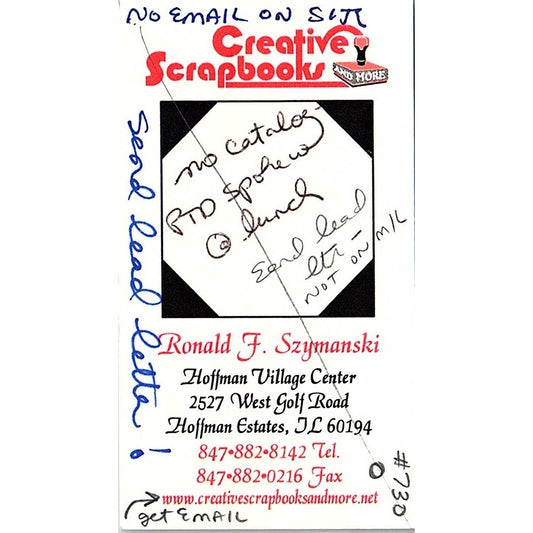 NO EMAIL ON SITE
Creative
Scrapbooks
AND MORE
no catalog
PTD Spoke w
@ lunch
Send lead
ltr -
NOT ON M/L
Send lead letter!
Ronald F. Szymanski
Hoffman Village Center
2527 West Golf Road
Hoffman Estates, IL 60194
847•882•8142 Tel.
847•882•0216 Fax
O
#730
www.creativescrapbooksandmore.net
get EMAIL